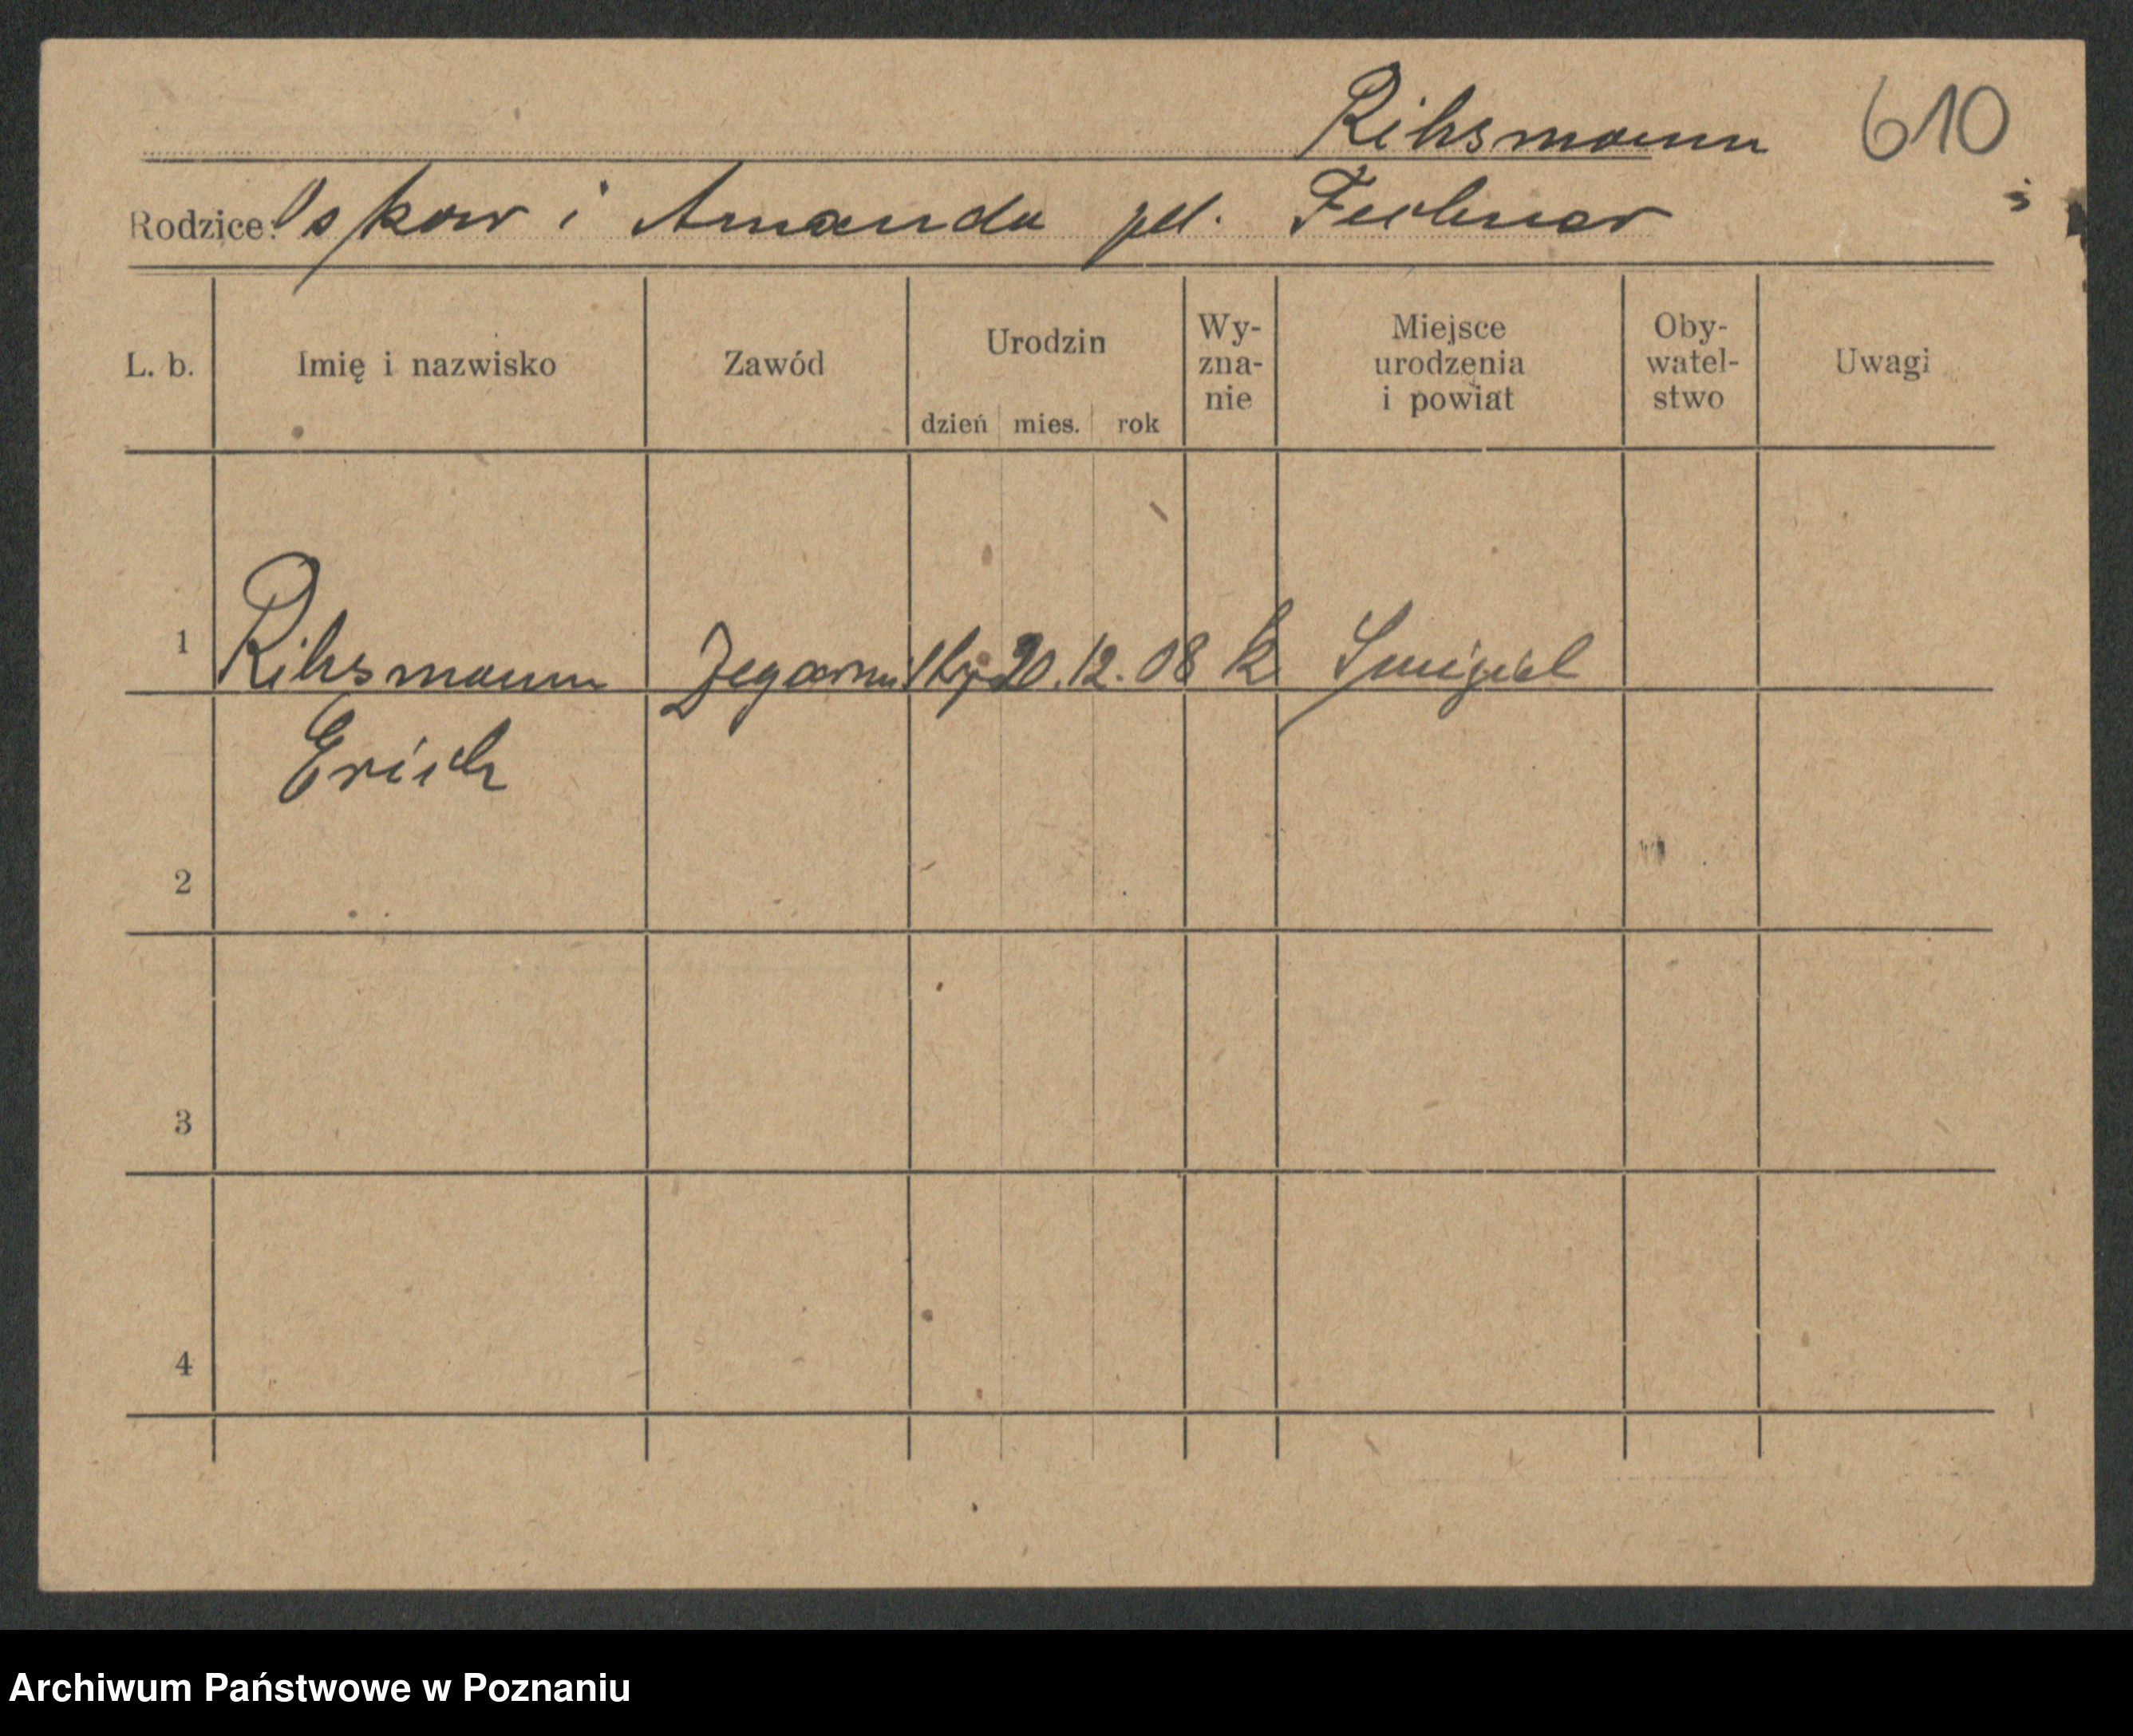 Rihsmann 610
Rodzice: Oskar i Amanda pd. Fechner
L. b. Imię i nazwisko Zawód Urodzin dzień mies. rok Wy-zna-nie Miejsce urodzenia i powiat Oby-watel-stwo Uwagi
1 Rihsmann 20.12.08 k Smigiel
Erich
2
3
4
Archiwum Państwowe w Poznaniu